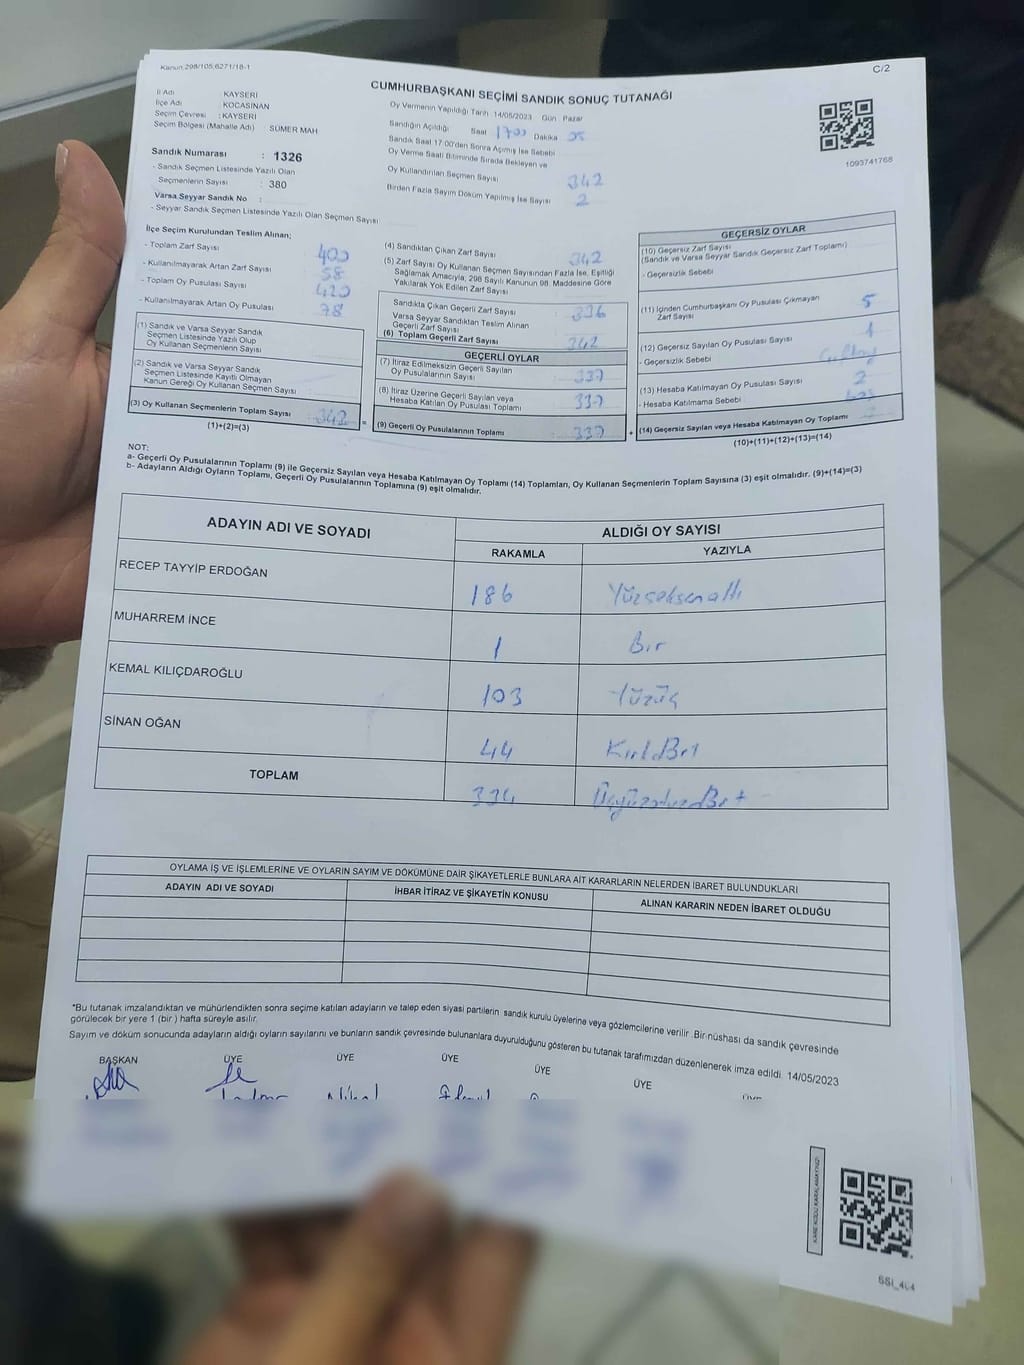 Kanun 298/105,6271/18-1
C/2
CUMHURBAŞKANI SEÇİMİ SANDIK SONUÇ TUTANAĞI
İl Adı : KAYSERİ
İlçe Adı : KOCASİNAN
Seçim Çevresi : KAYSERİ
Seçim Bölgesi (Mahalle Adı) SÜMER MAH
Sandık Numarası : 1326
- Sandık Seçmen Listesinde Yazılı Olan
Seçmenlerin Sayısı : 380
Varsa Seyyar Sandık No :
- Seyyar Sandık Seçmen Listesinde Yazılı Olan Seçmen Sayısı
Oy Vermenin Yapıldığı Tarih 14/05/2023 Gün : Pazar
Sandığın Açıldığı Saat 1700 Dakika 05
Sandık Saat 17:00'den Sonra Açımış İse Sebebi
Oy Verme Saati Bitiminde Sırada Bekleyen ve
Oy Kullandırılan Seçmen Sayısı 342
Birden Fazla Sayım Döküm Yapılmış İse Sayısı 2
1093741768
İlçe Seçim Kurulundan Teslim Alınan;
- Toplam Zarf Sayısı 400
- Kullanılmayarak Artan Zarf Sayısı 58
- Toplam Oy Pusulası Sayısı 420
- Kullanılmayarak Artan Oy Pusulası 78
(1) Sandık ve Varsa Seyyar Sandık
Seçmen Listesinde Yazılı Olup
Oy Kullanan Seçmenlerin Sayısı
(2) Sandık ve Varsa Seyyar Sandık
Seçmen Listesinde Kayıtlı Olmayan
Kanun Gereği Oy Kullanan Seçmen Sayısı :
(3) Oy Kullanan Seçmenlerin Toplam Sayısı : 342
(1)+(2)=(3)
(4) Sandıktan Çıkan Zarf Sayısı 342
(5) Zarf Sayısı Oy Kullanan Seçmen Sayısından Fazla İse, Eşitliği
Sağlamak Amacıyla; 298 Sayılı Kanunun 98. Maddesine Göre
Yakılarak Yok Edilen Zarf Sayısı
Sandıkta Çıkan Geçerli Zarf Sayısı : 336
Varsa Seyyar Sandıktan Teslim Alınan
Geçerli Zarf Sayısı
(6) Toplam Geçerli Zarf Sayısı : 342
GEÇERLİ OYLAR
(7) İtiraz Edilmeksizin Geçerli Sayılan
Oy Pusulalarının Sayısı
(8) İtiraz Üzerine Geçerli Sayılan veya
Hesaba Katılan Oy Pusulası Toplamı
(9) Geçerli Oy Pusulalarının Toplamı
GEÇERSİZ OYLAR
(10) Geçersiz Zarf Sayısı
(Sandık ve Varsa Seyyar Sandık Geçersiz Zarf Toplamı)
- Geçersizlik Sebebi
(11) İçinden Cumhurbaşkanı Oy Pusulası Çıkmayan
Zarf Sayısı 5
(12) Geçersiz Sayılan Oy Pusulası Sayısı 1
- Geçersizlik Sebebi
(13) Hesaba Katılmayan Oy Pusulası Sayısı 2
- Hesaba Katılmama Sebebi
(14) Geçersiz Sayılan veya Hesaba Katılmayan Oy Toplamı
(10)+(11)+(12)+(13)=(14)
NOT:
a- Geçerli Oy Pusulalarının Toplamı (9) ile Geçersiz Sayılan veya Hesaba Katılmayan Oy Toplamı (14) Toplamları, Oy Kullanan Seçmenlerin Toplam Sayısına (3) eşit olmalıdır. (9)+(14)=(3)
b- Adayların Aldığı Oyların Toplamı, Geçerli Oy Pusulalarının Toplamına (9) eşit olmalıdır.
ADAYIN ADI VE SOYADI ALDIĞI OY SAYISI
RAKAMLA YAZIYLA
RECEP TAYYİP ERDOĞAN 186 Yüzseksenaltı
MUHARREM İNCE 1 Bir
KEMAL KILIÇDAROĞLU 103 Yüzüç
SİNAN OĞAN 44
TOPLAM 334
OYLAMA İŞ VE İŞLEMLERİNE VE OYLARIN SAYIM VE DÖKÜMÜNE DAİR ŞİKAYETLERLE BUNLARA AİT KARARLARIN NELERDEN İBARET BULUNDUKLARI
ADAYIN ADI VE SOYADI İHBAR İTİRAZ VE ŞİKAYETİN KONUSU ALINAN KARARIN NEDEN İBARET OLDUĞU
*Bu tutanak imzalandıktan ve mühürlendikten sonra seçime katılan adayların ve talep eden siyasi partilerin sandık kurulu üyelerine veya gözlemcilerine verilir. Bir nüshası da sandık çevresinde
görülecek bir yere 1 (bir ) hafta süreyle asılır.
Sayım ve döküm sonucunda adayların aldığı oyların sayılarını ve bunların sandık çevresinde bulunanlara duyurulduğunu gösteren bu tutanak tarafımızdan düzenlenerek imza edildi. 14/05/2023
BAŞKAN ÜYE ÜYE ÜYE ÜYE ÜYE